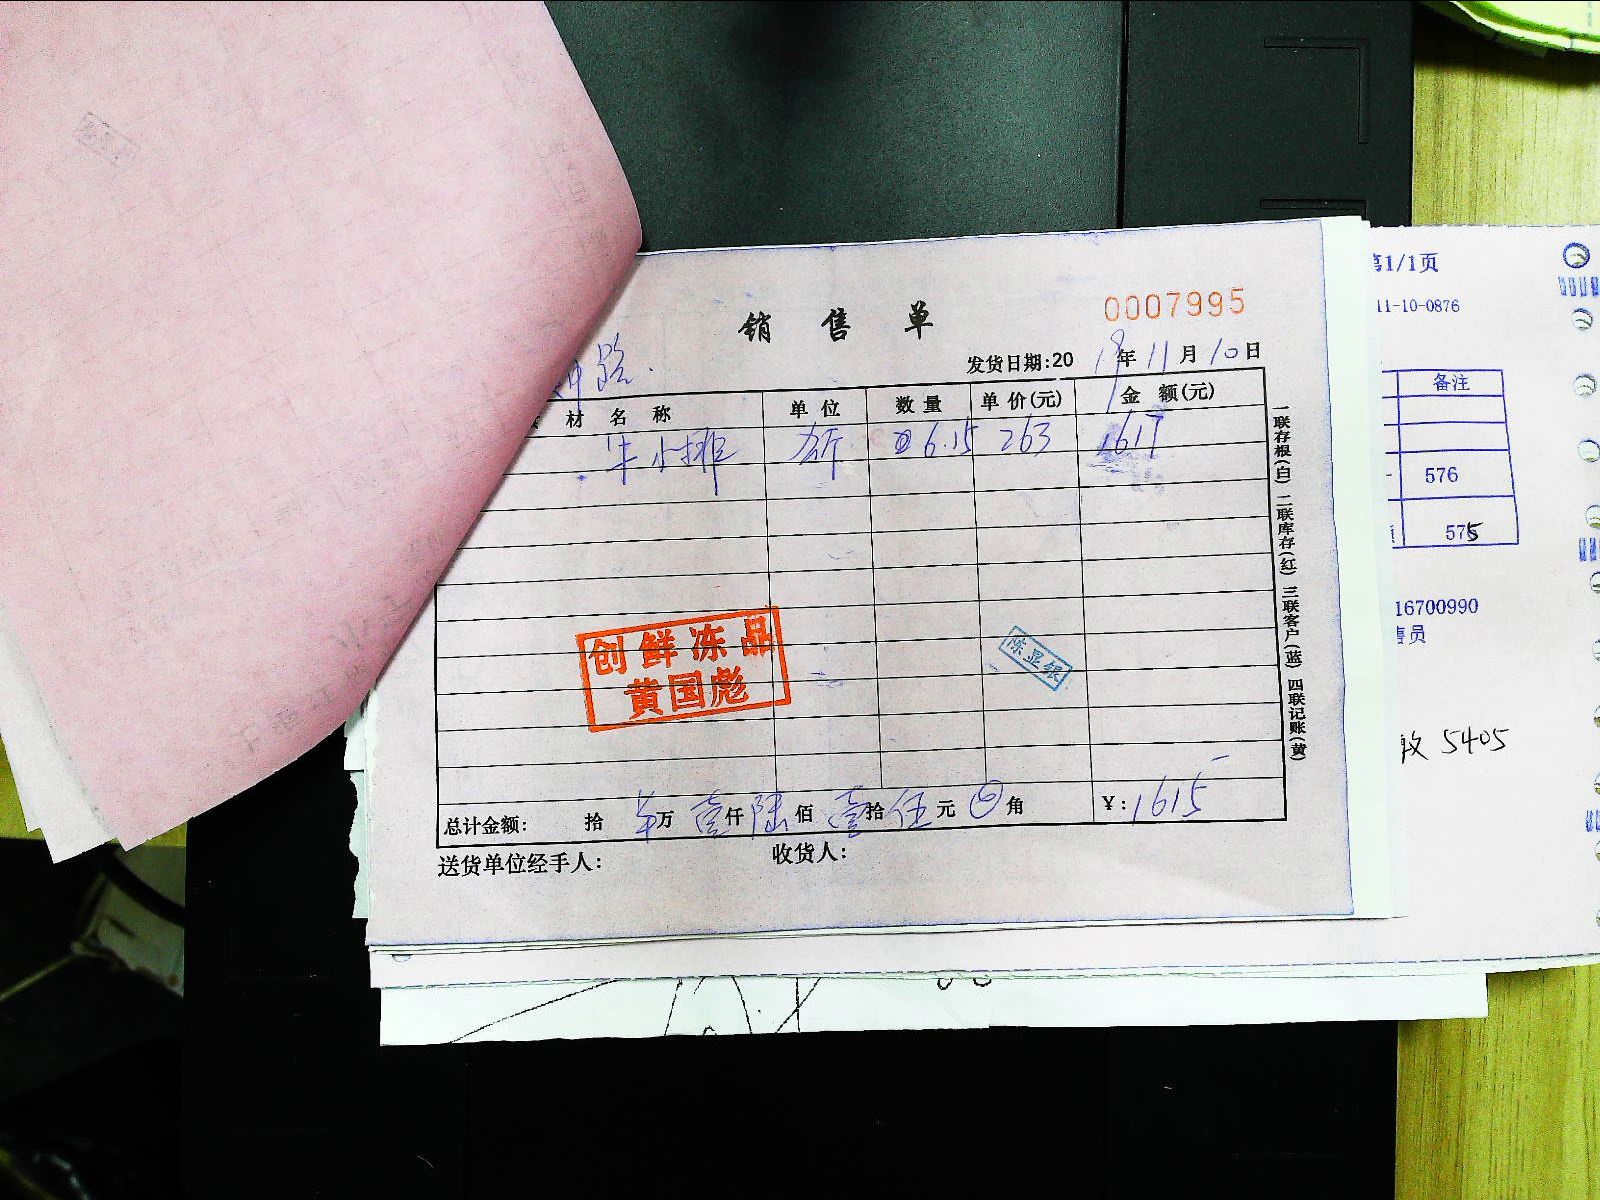 销 售 单
0007995
路.
发货日期:2019年11月10日
材 名 称 单 位 数 量 单 价(元) 金 额(元)
牛小排 公斤 6.15 263 1617
创鲜冻品
黄国彪
陈显银
总计金额: 拾 万 壹仟 陆佰 壹拾 伍元 角 ¥:1615
送货单位经手人: 收货人:
一联存根(白) 二联库存(红) 三联客户(蓝) 四联记账(黄)
第1/1页
11-10-0876
备注
576
575
16700990
售员
5405